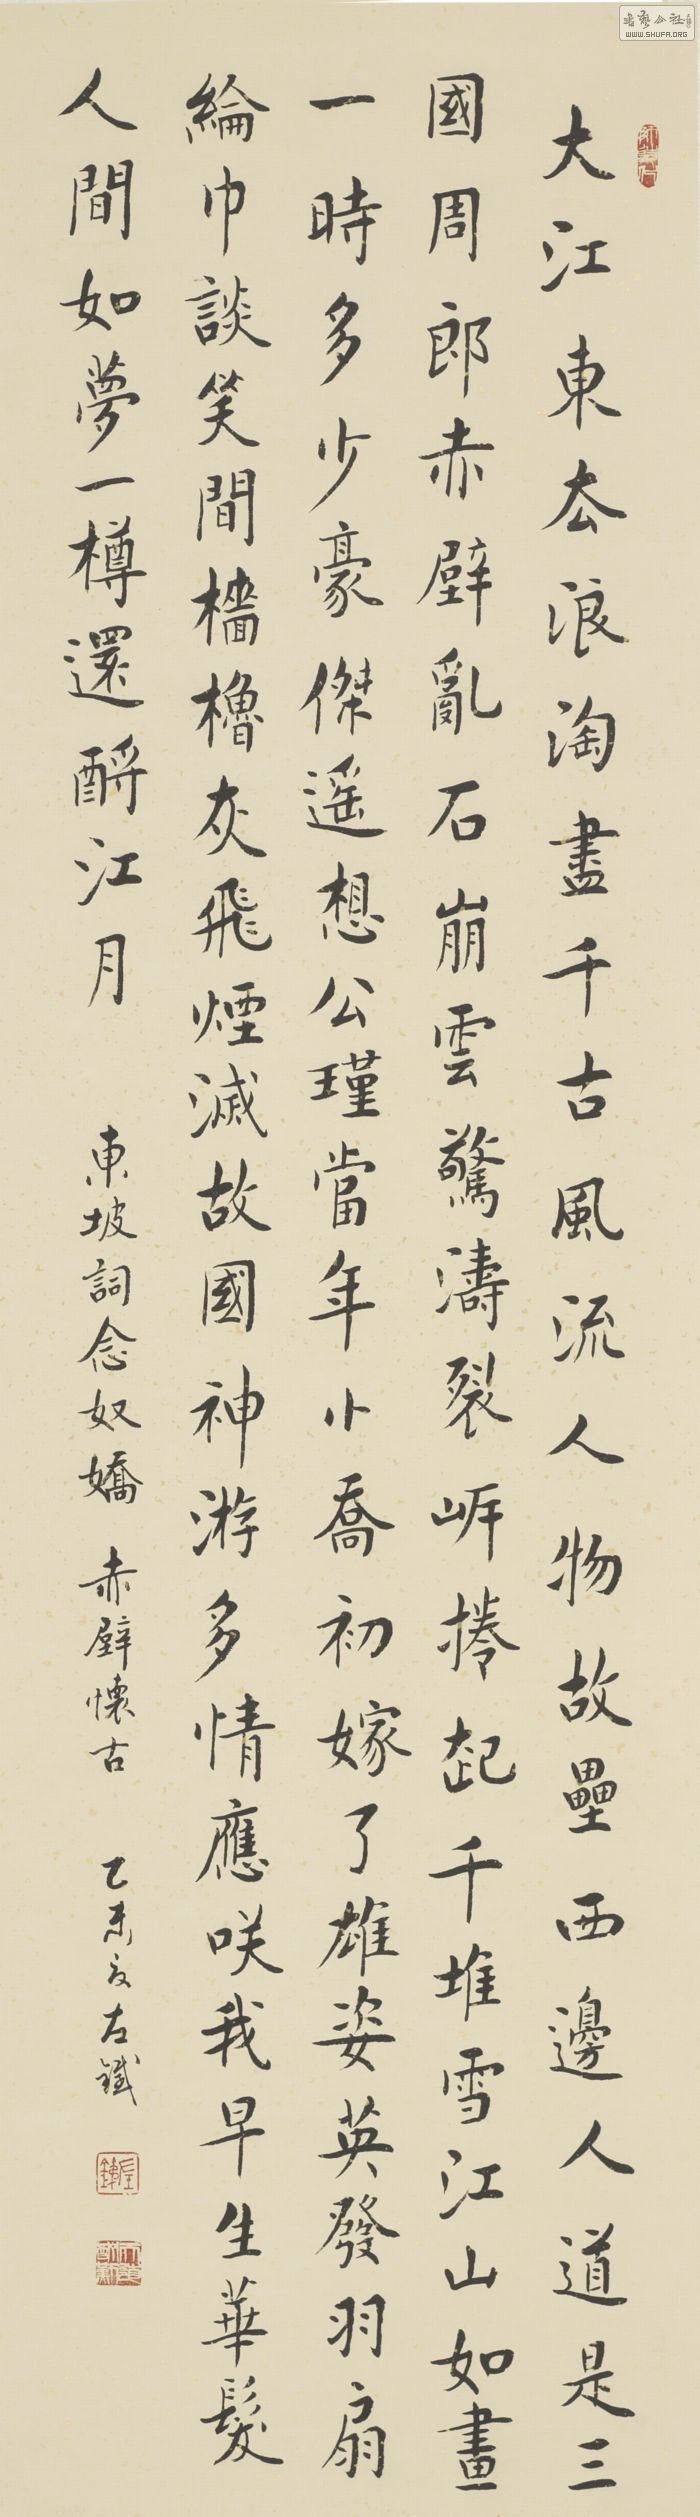 大江東去浪淘盡千古風流人物故壘西邊人道是三
國周郎赤壁亂石崩雲驚濤裂岸捲起千堆雪江山如畫
一時多少豪傑遥想公瑾當年小喬初嫁了雄姿英發羽扇
綸巾談笑間檣櫓灰飛煙滅故國神游多情應咲我早生華髮
人間如夢一樽還酹江月
東坡詞念奴嬌 赤壁懷古 乙未夏左鐵
WWW.SHUFA.ORG